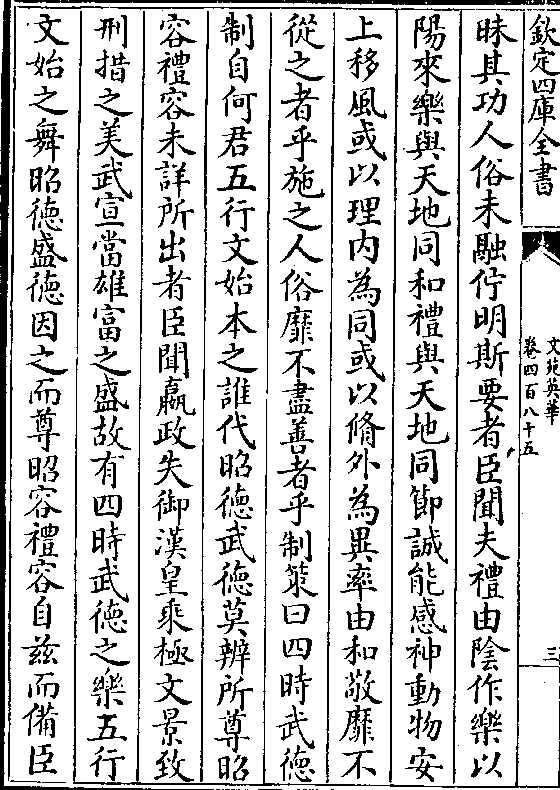 欽定四庫全書
文苑英華
卷四百八十五
三
昧其功人俗未融佇明斯要者臣聞夫禮由陰作樂以
陽來樂與天地同和禮與天地同節誠能感神動物安
上移風或以理内為同或以脩外為異率由和敬靡不
從之者乎施之人俗靡不盡善者乎制策曰四時武德
制自何君五行文始本之誰代昭德武德莫辨所尊昭
容禮容未詳所出者臣聞嬴政失御漢皇乘極文景致
刑措之美武宣當雄富之盛故有四時武德之樂五行
文始之舞昭德盛德因之而尊昭容禮容自兹而備臣